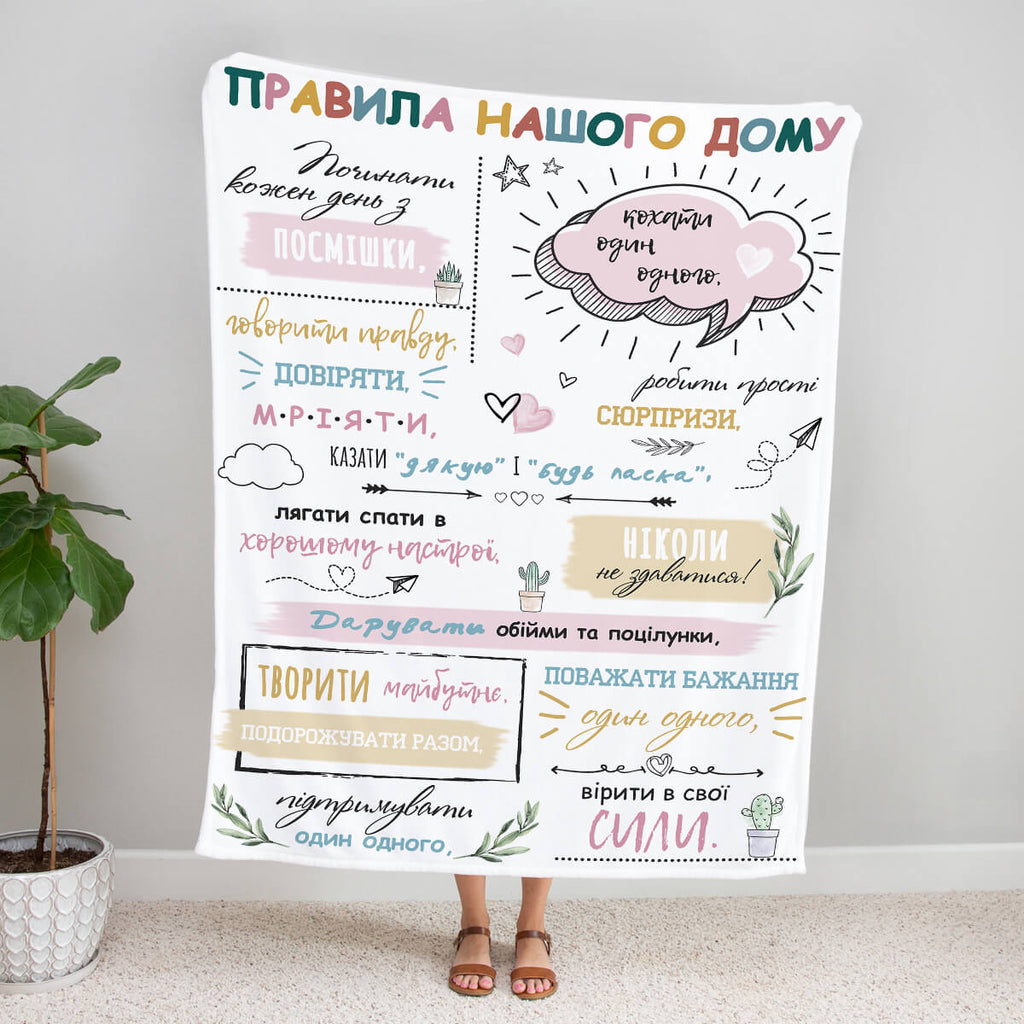 ПРАВИЛА НАШОГО ДОМУ
Починати
кожен день з
ПОСМІШКИ,
кохати
один
одного,
говорити правду,
ДОВІРЯТИ,
М·Р·І·Я·Т·И,
робити прості
СЮРПРИЗИ,
КАЗАТИ "дякую" І "будь ласка",
лягати спати в
хорошому настрої,
НІКОЛИ
не здаватися!
Дарувати обійми та поцілунки,
ТВОРИТИ майбутнє,
ПОДОРОЖУВАТИ РАЗОМ,
ПОВАЖАТИ БАЖАННЯ
один одного,
підтримувати
один одного,
вірити в свої
СИЛИ.